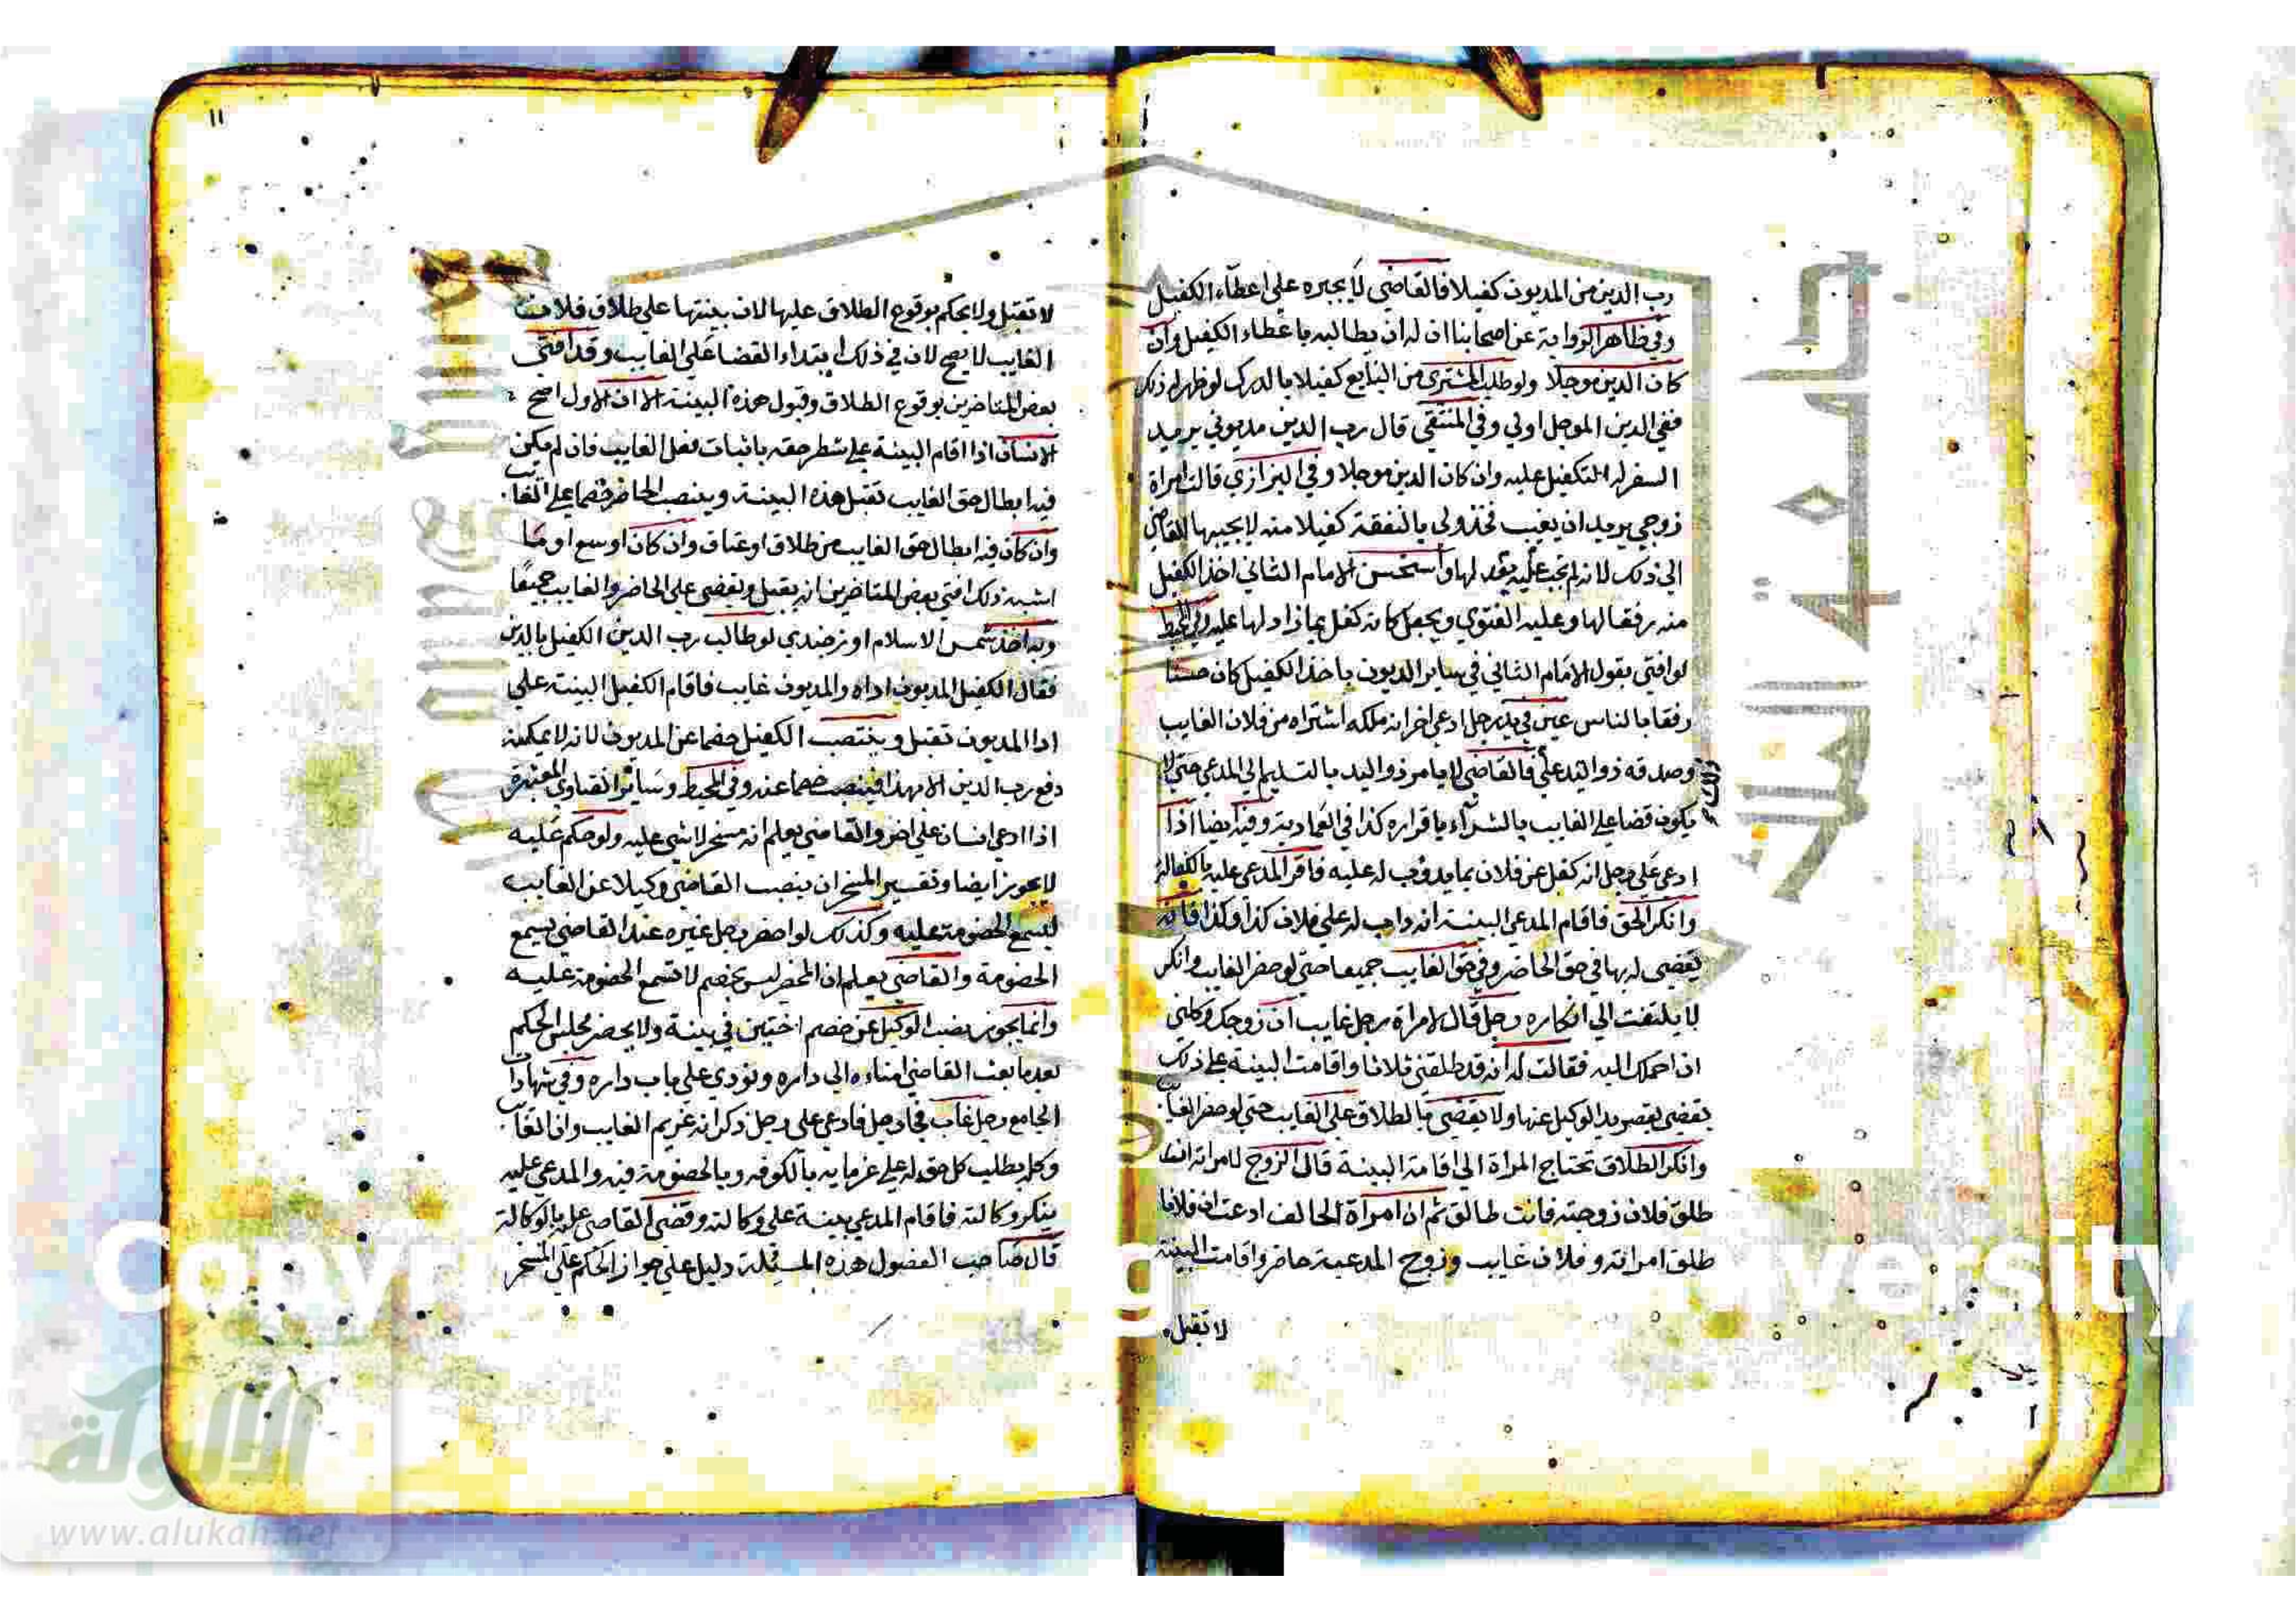 رب الدين من المديون كفيلا فالقاضي لا يجبره علي اعطاء الكفيل
وفي ظاهر الرواية عن اصحابنا ان له ان يطالبه باعطاء الكفيل وان
كان الدين موجلا ولو طلب المشتري من البايع كفيلا بالدرك لو ظهر له ذلك
ففي الدين الموجل اولي وفي المنتقي قال رب الدين مديوني يريد
السفر له التكفيل عليه وان كان الدين موجلا وفي البزازي قالت امراة
زوجي يريد ان يغيب فخذ ولي بالنفقة كفيلا منه لا يجيبها القاضي
الي ذلك لانه لم تجب عليه بعد لها واستحسن الامام الثاني اخذ الكفيل
منه رفقا لها وعليه الفتوي ويجعل كانه كفل بما ذاد لها عليه وفي المحيط
لو افتي بقول الامام الثاني في ساير الديون باخذ الكفيل كان حسنا
رفقا بالناس عين في يد رجل ادعي اخر انه ملكه اشتراه من فلان الغايب
وصدقه ذو اليد علي فالقاضي لا يامر ذو اليد بالتسليم الي المدعي حتي لا
ذلك
يكون قضا علي الغايب بالشراء باقراره كذا في العمادية وفيه ايضا اذا
ادعي علي رجل انه كفل عن فلان بما يذوب له عليه فاقر المدعي عليه بالكفالة
وانكر الحق فاقام المدعي البينة انه داب له علي فلان كذا وكذا فانه
يقضي له بها في حق الحاضر وفي حق الغايب جميعا حتي لو حضر الغايب وانكر
لا يلتفت الي انكاره رجل قال لامراة رجل غايب ان زوجك وكلني
ان احملك اليه فقالت له انه قد طلقني ثلاثا واقامت البينة علي ذلك
يقضي بقصر يد الوكيل عنها ولا يقضي بالطلاق علي الغايب حتي لو حضر الغايب
وانكر الطلاق تحتاج المراة الي اقامة البينة قال الزوج لامراته ان
طلق فلان زوجته فانت طالق ثم ان امراة الحالف ادعت ان فلانا
طلق امراته وفلان غايب وزوج المدعية حاضر واقامت البينة
لا تقبل
١١
لا تقبل ولا يحكم بوقوع الطلاق عليها لان بينتها علي طلاق فلان
الغايب لا يصح لان في ذلك ابتداء القضا علي الغايب وقد افتي
بعض المتاخرين بوقوع الطلاق وقبول هذه البينة الا ان الاول اصح
الانسان اذا اقام البينة علي شطر حقه باثبات فعل الغايب فان لم يكن
فيه ابطال حق الغايب تقبل هذه البينة وينصب الحاضر خصما علي الغايب
وان كان فيه ابطال حق الغايب من طلاق او عتاق وان كان اوسع او ما
اشبه ذلك افتي بعض المتاخرين انه يقبل ويقضي علي الحاضر والغايب جميعا
وبه اخذ شمس الاسلام اوزجندي لو طالب رب الدين الكفيل بالدين
فقال الكفيل المديون اداه والمديون غايب فاقام الكفيل البينة علي
ادا المديون تقبل وينتصب الكفيل خصما عن المديون لانه لا يمكنه
دفع رب الدين الا بهذا فينتصب خصما عنه وفي المحيط وساير الفتاوي المعتبرة
اذا ادعي انسان علي اخر والقاضي يعلم انه مسخر لا شي عليه ولو حكم عليه
لا يجوز ايضا وتفسير المسخر ان ينصب القاضي وكيلا عن الغايب
ليسمع الخصومة عليه وكذلك لو احضر رجل غيره عند القاضي يسمع
الخصومة والقاضي يعلم ان المحضر ليس بخصم لا تسمع الخصومة عليه
وانما يجوز نصب الوكيل عن خصم اختين في بيته ولا يحضر مجلس الحكم
بعد ما بعث القاضي امناءه الي داره ونودي علي باب داره وفي شهادات
الجامع رجل غاب فجاء رجل فادعي علي رجل ذكر انه غريم الغايب وان الغايب
وكله بطلب كل حق له علي غرمايه بالكوفة وبالخصومة فيه والمدعي عليه
ينكر وكالته فاقام المدعي بينة علي وكالته وقضي القاضي عليه بالوكالة
قال صاحب الفصول هذه المسئلة دليل علي جواز الحكم علي المسخر
الألوكة
www.alukah.net